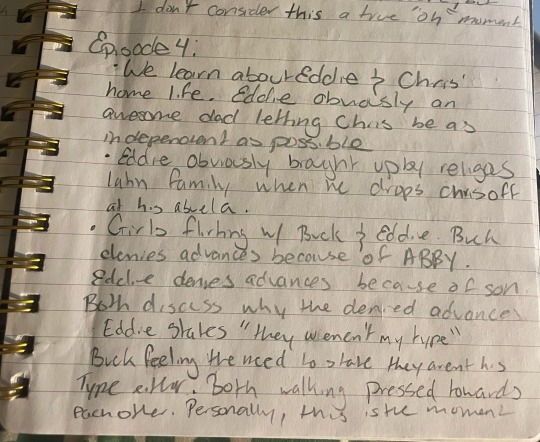 I don't consider this a true "oh" moment
Episode 4:
• We learn about Eddie & Chris'
home life. Eddie obvously an
awesome dad letting Chris be as
independent as possible
• Eddie obviously brought up by religas
latin family when he drops chris off
at his abuela.
• Girls flirting w/ Buck & Eddie. Buck
denies advances because of ABBY.
Eddie denies advances because of son.
Both discuss why the denied advances
Eddie states "they weren't my type"
Buck feeling the need to state they arent his
Type either. Both walking pressed towards
eachother. Personally, this is the moment